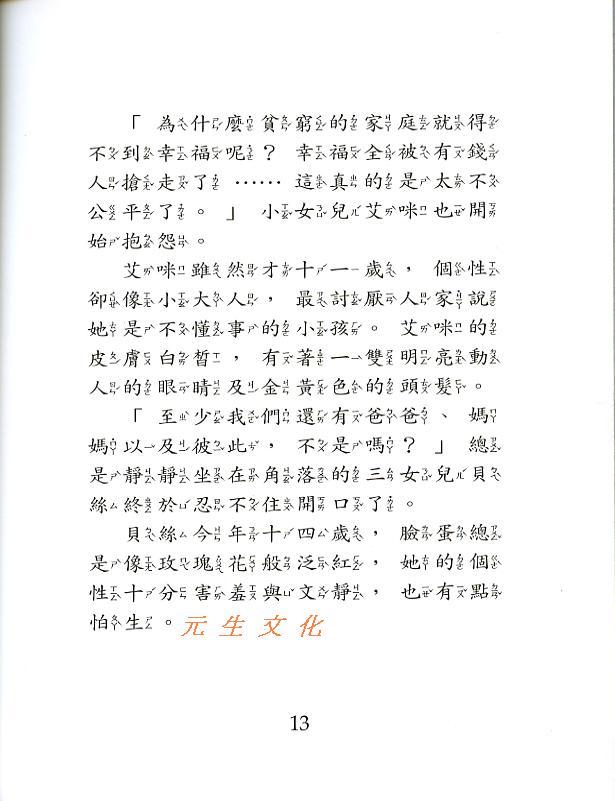 「為什麼貧窮的家庭就得
不到幸福呢？幸福全被有錢
人搶走了……這真的是太不
公平了。」小女兒艾咪也開
始抱怨。
艾咪雖然才十一歲，個性
卻像小大人，最討厭人家說
她是不懂事的小孩。艾咪的
皮膚白皙，有著一雙明亮動
人的眼睛及金黃色的頭髮。
「至少我們還有爸爸、媽
媽以及彼此，不是嗎？」總
是靜靜坐在角落的三女兒貝
絲終於忍不住開口了。
貝絲今年十四歲，臉蛋總
是像玫瑰花般泛紅，她的個
性十分害羞與文靜，也有點
怕生。
元生文化
13